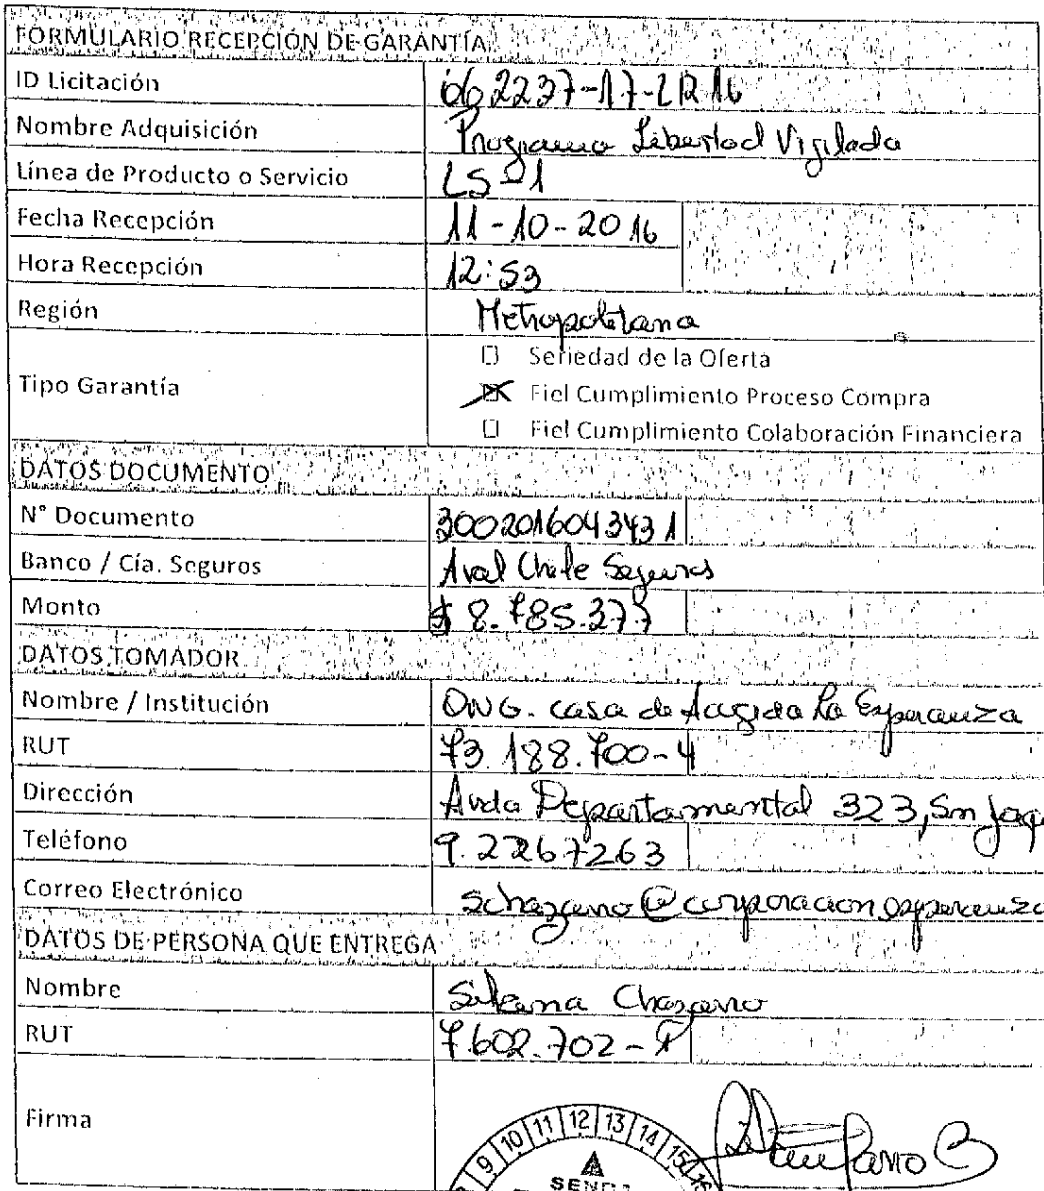 FORMULARIO RECEPCIÓN DE GARANTÍA
ID Licitación 2237-17-LR16
Nombre Adquisición Programa Libertad Vigilada
Línea de Producto o Servicio LS-1
Fecha Recepción 11-10-2016
Hora Recepción 12:53
Región Metropolitana
Tipo Garantía
Seriedad de la Oferta
Fiel Cumplimiento Proceso Compra
Fiel Cumplimento Colaboración Financiera
DATOS DOCUMENTO
N° Documento 3002016043431
Banco / Cía. Seguros Aval Chile Seguros
Monto $ 8.785.377
DATOS TOMADOR
Nombre / Institución ONG. casa de Acogida La Esperanza
RUT 73.188.700-4
Dirección Avda Departamental 323, Sn Joaq
Teléfono 9.2267263
Correo Electrónico
DATOS DE PERSONA QUE ENTREGA
Nombre
RUT 7.602.702-
Firma
9 10 11 12 13 14 15 16
SENDA